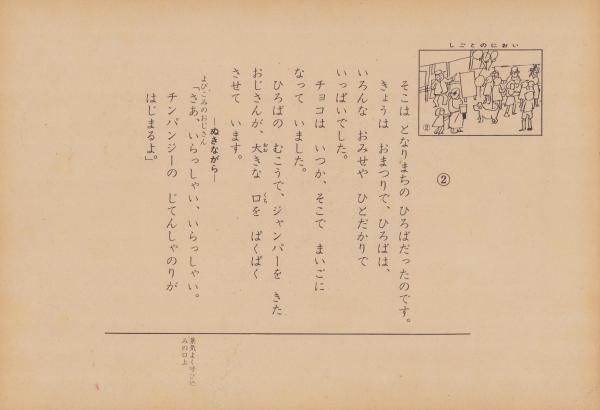 しごとのにおい
②
②
そこは となりまちの ひろばだったのです。
きょうは おまつりで、ひろばは、
いろんな おみせや ひとだかりで
いっぱいでした。
チョコは いつか、そこで まいごに
なって いました。
ひろばの むこうで、ジャンパーを きた
おじさんが、大きな 口を ぱくぱく
させて います。
―ぬきながら―
よびこみのおじさん
「さあ、いらっしゃい、いらっしゃい。
チンパンジーの じてんしゃのりが
はじまるよ」。
景気よく
みの口上